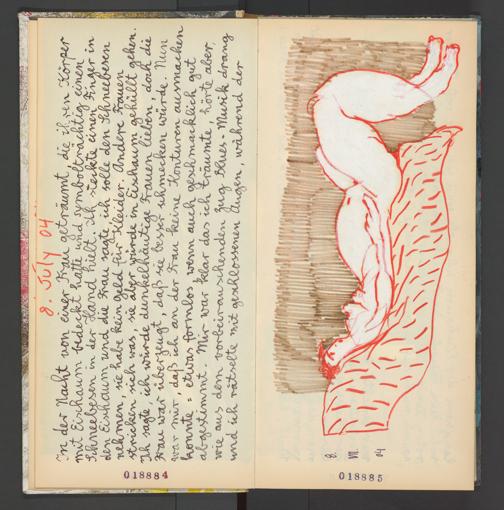 8. July 04
In der Nacht von einer Frau geträumt, die ihren Körper
mit Eischaum bedeckt hatte und symbolträchtig einen
Schneebesen in der Hand hielt. Ich steckte einen Finger in
den Eischaum und die Frau sagte, ich solle den Schneebesen
nehmen, sie habe kein Geld für Kleider. Andere Frauen
stricken sich was, sie aber würde in Eischaum gehüllt gehen.
Ich sagte ich würde dunkelhäutige Frauen lieben, doch die
Frau war überzeugt, daß sie besser schmecken würde. Nun
war mir, daß ich an der Frau keine Konturen ausmachen
konnte = etwas formlos wenn auch geschmacklich gut
abgestimmt. Mir war klar das ich träumte, hörte aber,
wie aus dem vorbeirauschenden Zug Blues-Musik drang
und ich rätselte mit geschlossenen Augen, während der
018884
8. VII 04
018885